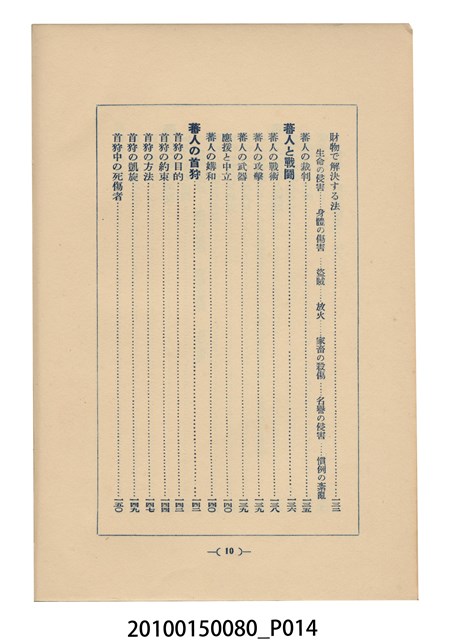 財物で解決する法…一三二
生命の侵害……身體の傷害……盜賊……放火……家畜の殺傷……名譽の侵害……慣例の紊亂
蕃人の裁判…一三五
蕃人と戰鬪…一三六
蕃人の戰術…一三八
蕃人の攻擊…一三九
蕃人の武器…一三九
應援と中立…一四〇
蕃人の媾和…一四〇
蕃人の首狩…一四二
首狩の目的…一四三
首狩の約束…一四四
首狩の方法…一四七
首狩の凱旋…一四九
首狩中の死傷者…一五〇
—( 10 )—
20100150080_P014